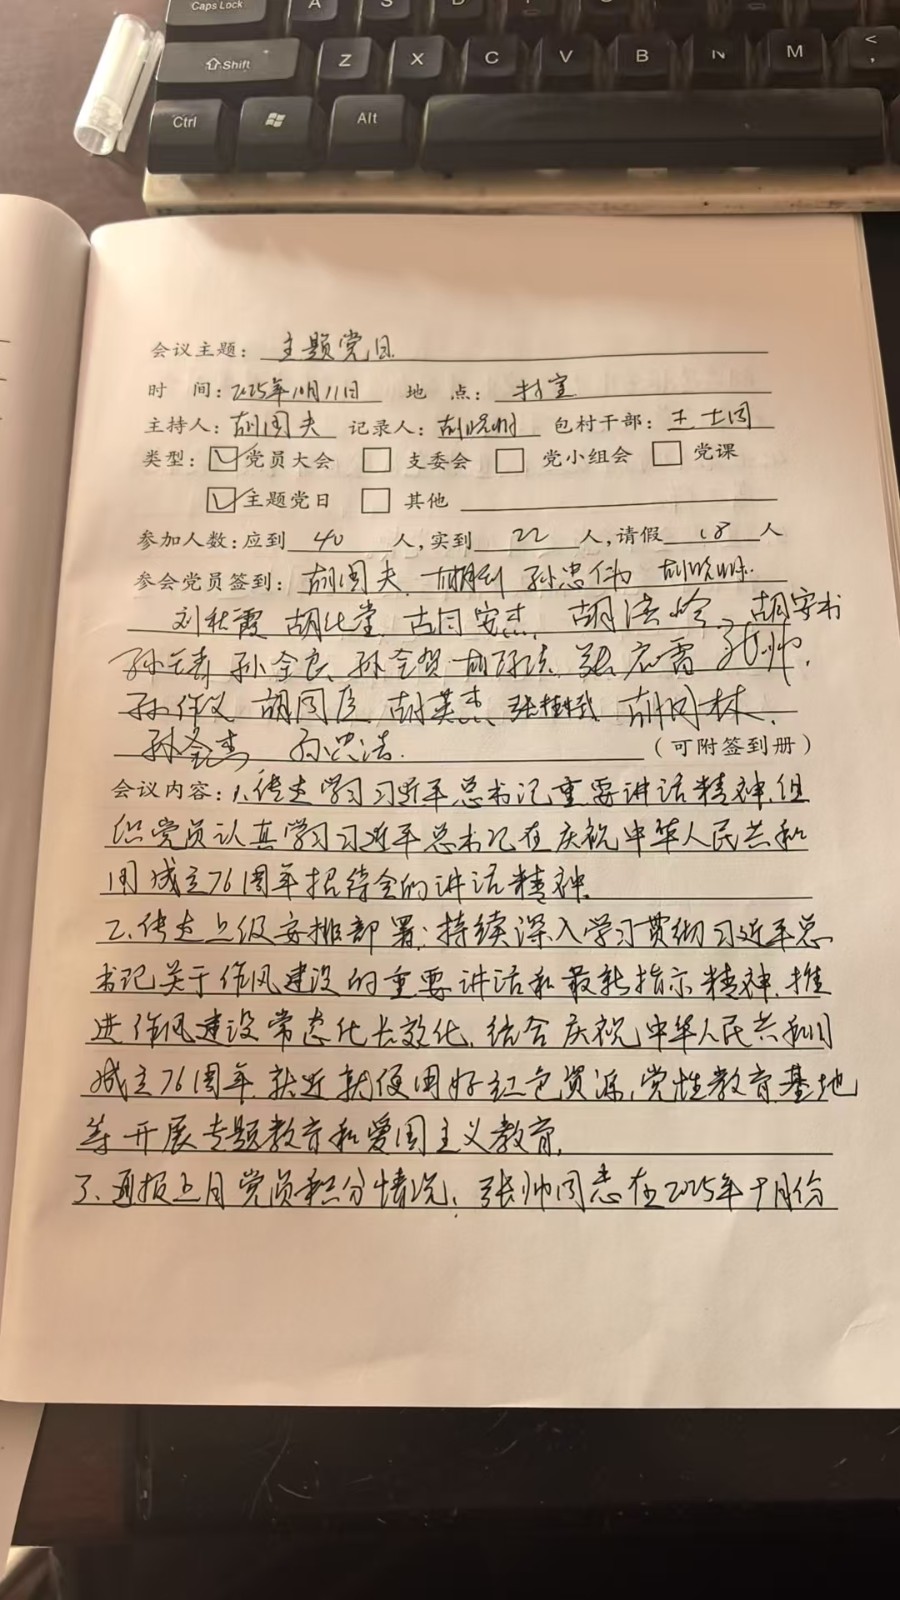 Caps Lock A S
Shift Z X C V B N M <
,
Ctrl Alt
会议主题: 主题党日
时 间: 2025年10月11日 地 点: 村室
主持人: 胡国夫 记录人: 包村干部: 王士同
类型: 党员大会 支委会 党小组会 党课
主题党日 其他
参加人数: 应到 40 人, 实到 22 人, 请假 18 人
参会党员签到: 胡国夫 孙忠伟
刘秋霞 胡化堂 胡安杰 胡洪岭 胡安书
孙全良 孙全贺 张志雷 张帅
孙作义 胡同臣 胡英杰 张桂钱 胡同林
孙圣杰 孙忠法 (可附签到册)
会议内容: 1、传达学习习近平总书记重要讲话精神,组
织党员认真学习习近平总书记在庆祝中华人民共和
国成立76周年招待会的讲话精神。
2、传达上级安排部署: 持续深入学习贯彻习近平总
书记关于作风建设的重要讲话和最新指示精神,推
进作风建设常态化长效化,结合庆祝中华人民共和国
成立76周年,就近就便用好红色资源、党性教育基地
等开展专题教育和爱国主义教育。
3、通报上月党员积分情况: 张帅同志在2025年十月份